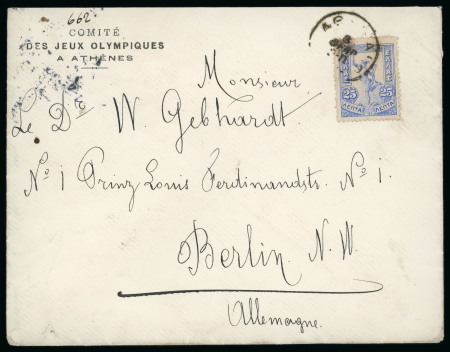 662
COMITÉ
DES JEUX OLYMPIQUES
A ATHÈNES
ΕΛΛΑΣ
25 25
ΛΕΠΤΑ ΛΕΠΤΑ
Monsieur
Le Dr W. Gebhardt.
No 1 Prinz Louis Ferdinandsts. No 1.
Berlin N.W.
Allemagne.